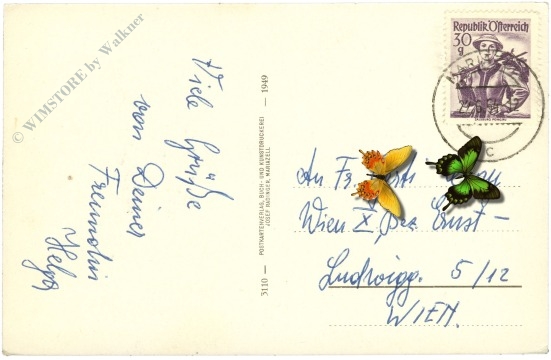 © WIMSTORE by Walkner
Viele Grüße
von Deiner
Freundin
Helga
3110 — POSTKARTENVERLAG, BUCH- UND KUNSTDRUCKEREI — 1949
JOSEF RADINGER, MARIAZELL
Republik Österreich
30
g
SALZBURG PONGAU
An Fr.
Wien X, Ernst-
Ludwigg. 5/12
WIEN.